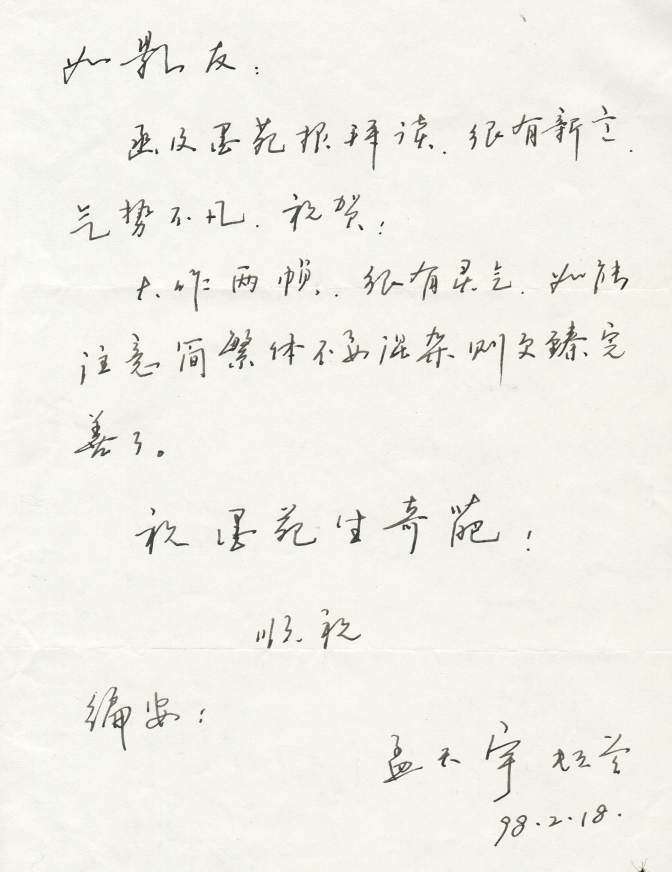 如影友：
函及墨苑报拜读．很有新意．
气势不凡．祝贺！
大作两帧．很有灵气．如能
注意简繁体不要混杂则更臻完
善了。
祝墨苑生奇葩！
顺祝
编安！
孟天宇
98.2.18.